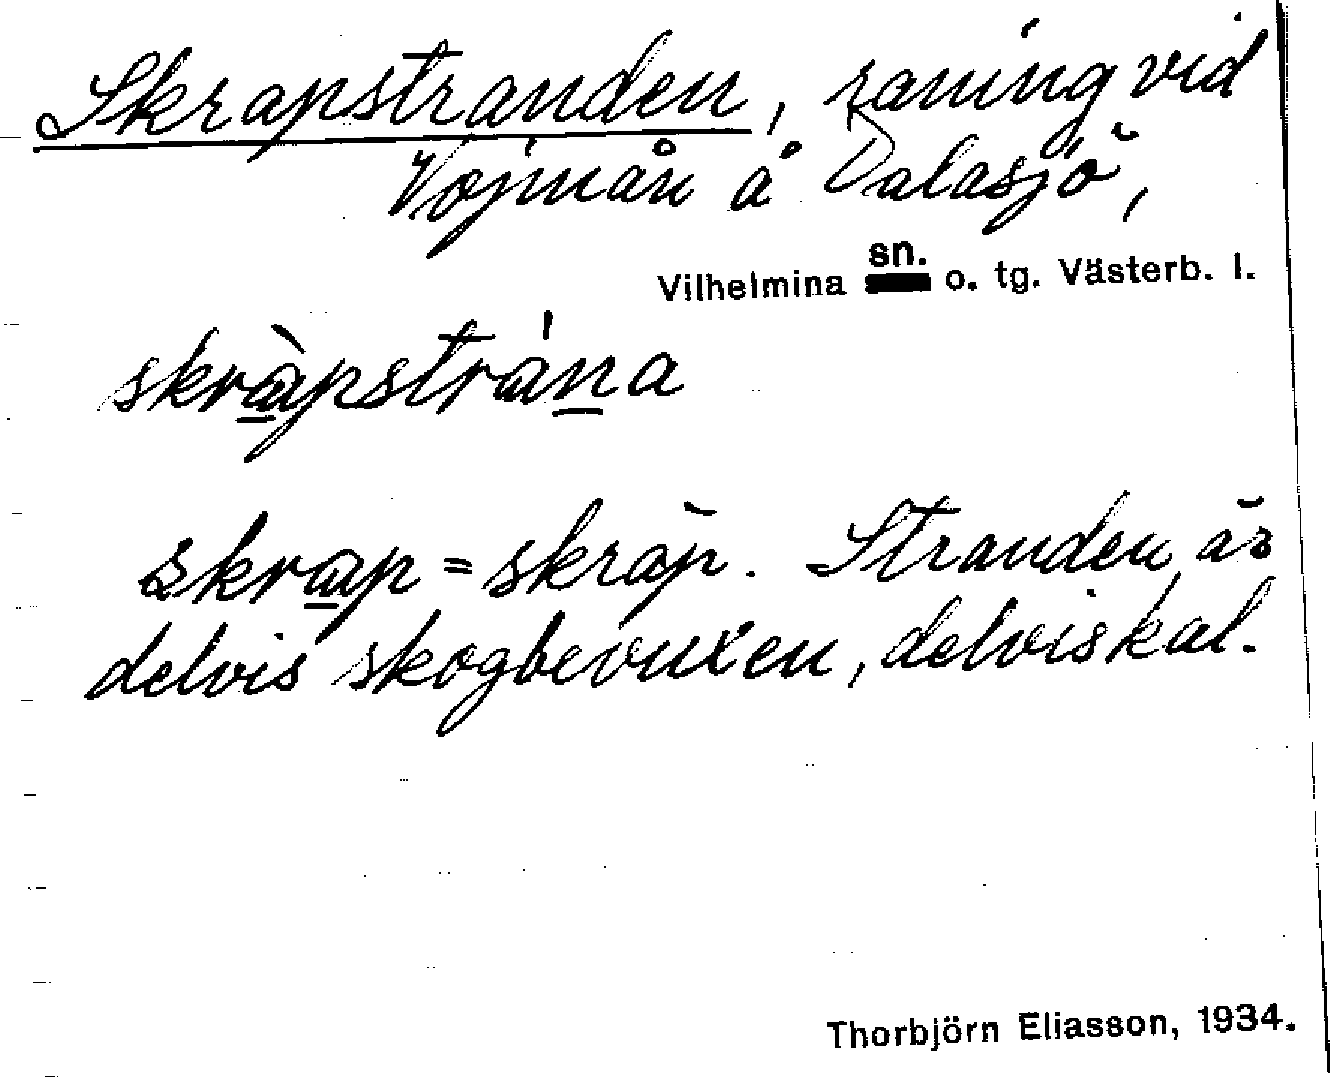 Skrapstranden, raning vid
Vojmån å Dalasjö,
Vilhelmina sn. o. tg. Västerb. l.
skràpstrána
skrap = skräp. Stranden är
delvis skogbevuxen, delvis kal.
Thorbjörn Eliasson, 1934.